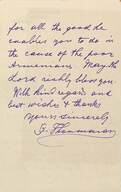 for all the good he
enables you to do in
the cause of the poor
Armenians May the
Lord richly bless you.
With kind regards and
best wishes & thanks
Yours sincerely
G. Thoumaian